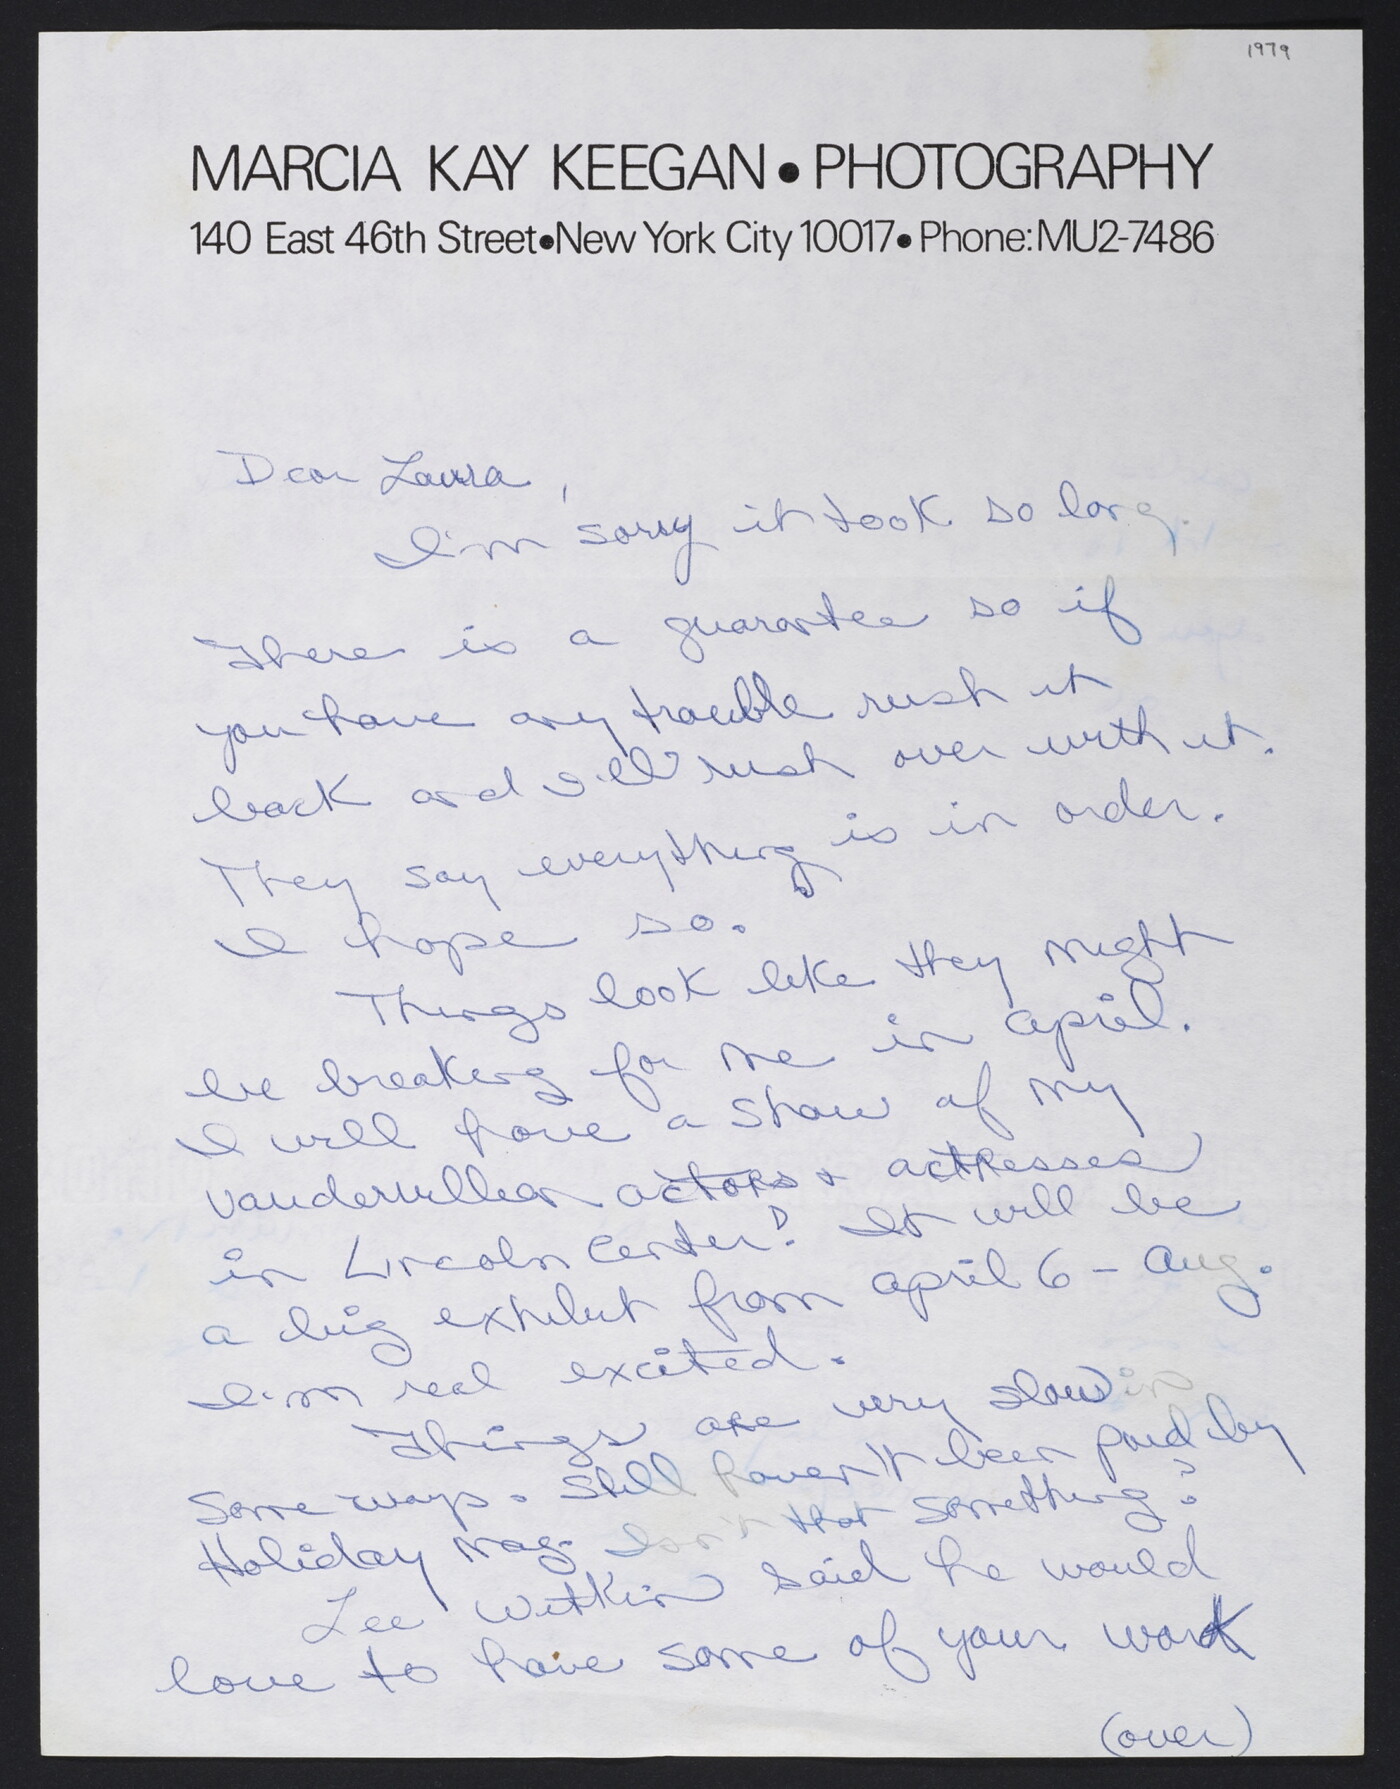 1979
MARCIA KAY KEEGAN • PHOTOGRAPHY
140 East 46th Street • New York City 10017 • Phone: MU2-7486
Dear Laura,
I'm sorry it took so long.
There is a guarantee so if
you have any trouble rush it
back and I'll rush over with it.
They say everything is in order.
I hope so.
Things look like they might
be breaking for me in April.
I will have a show of my
vaudevillian actors + actresses
in Lincoln Center! It will be
a big exhibit from April 6 - Aug.
I'm real excited.
Things are very slow in
some ways. Still haven't been paid by
Holiday mag. Isn't that something?
Lee Witkin said he would
love to have some of your work
(over)